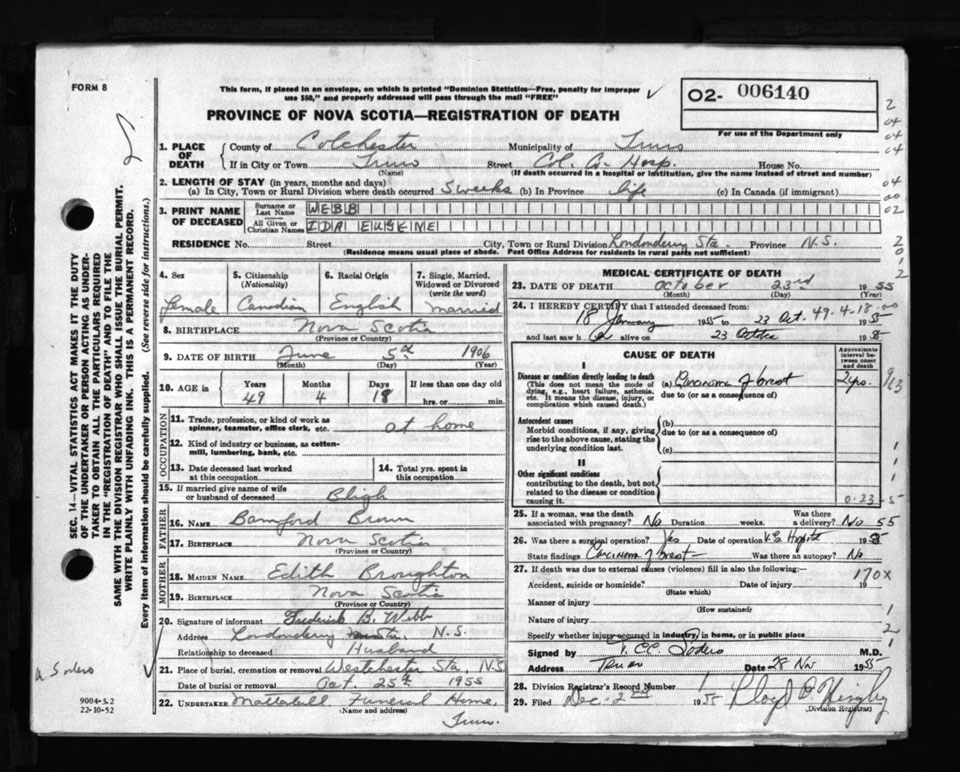 FORM 8
This form, if placed in an envelope, on which is printed "Dominion Statistics—Free, penalty for improper
use $50," and properly addressed will pass through the mail "FREE"
02- 006140
For use of the Department only
PROVINCE OF NOVA SCOTIA—REGISTRATION OF DEATH
1. PLACE OF DEATH
County of Colchester Municipality of Truro
If in City or Town Truro Street Col. Co. Hosp. House No.
(Name) (If death occurred in a hospital or institution, give the name instead of street and number)
2. LENGTH OF STAY (in years, months and days)
(a) In City, Town or Rural Division where death occurred 5 weeks (b) In Province life (c) In Canada (if immigrant)
3. PRINT NAME OF DECEASED
Surname or Last Name WEBB
All Given or Christian Names IDA EUGEME
RESIDENCE No. Street City, Town or Rural Division Londonderry Sta. Province N.S.
(Residence means usual place of abode. Post Office Address for residents in rural parts not sufficient)
4. Sex 5. Citizenship 6. Racial Origin 7. Single, Married,
(Nationality) Widowed or Divorced
(write the word)
Female Canadian English married
8. BIRTHPLACE Nova Scotia
(Province or Country)
9. DATE OF BIRTH June 5th 1906
(Month) (Day) (Year)
10. AGE in Years Months Days If less than one day old
49 4 18 hrs. or min.
OCCUPATION
11. Trade, profession, or kind of work as
spinner, teamster, office clerk, etc. at home
12. Kind of industry or business, as cotton-
mill, lumbering, bank, etc.
13. Date deceased last worked
at this occupation
14. Total yrs. spent in
this occupation
15. If married give name of wife
or husband of deceased
FATHER
16. NAME Bamford Brown
17. BIRTHPLACE Nova Scotia
(Province or Country)
MOTHER
18. MAIDEN NAME Edith Broughton
19. BIRTHPLACE Nova Scotia
(Province or Country)
20. Signature of informant Frederick B. Webb
Address Londonderry Sta. N.S.
Relationship to deceased Husband
21. Place of burial, cremation or removal Westchester Sta, N.S
Date of burial or removal Oct. 25th 1955
22. UNDERTAKER Mattatall Funeral Home,
(Name and address)
Truro.
MEDICAL CERTIFICATE OF DEATH
23. DATE OF DEATH October 23rd 1955
(Month) (Day) (Year)
24. I HEREBY CERTIFY that I attended deceased from:
18 January 1955 to 23 Oct. 49-4-18-00 1955
and last saw h alive on 23 October 1955
CAUSE OF DEATH
Approximate interval between onset and death
I
Disease or condition directly leading to death
(This does not mean the mode of
dying, e.g., heart failure, asthenia,
etc. It means the disease, injury, or
complication which caused death.)
(a) Carcinoma of breast 2 yrs.
due to (or as a consequence of)
Antecedent causes
Morbid conditions, if any, giving
rise to the above cause, stating the
underlying condition last.
(b)
due to (or as a consequence of)
(c)
II
Other significant conditions
contributing to the death, but not
related to the disease or condition
causing it.
0-23-5
25. If a woman, was the death Was there
associated with pregnancy? No Duration weeks. a delivery? No 55
26. Was there a surgical operation? Yes Date of operation 1955
State findings Carcinoma of breast Was there an autopsy? No
27. If death was due to external causes (violence) fill in also the following:—
170x
Accident, suicide or homicide? Date of injury 19
(State which)
Manner of injury
(How sustained)
Nature of injury
Specify whether injury occurred in industry, in home, or in public place
Signed by T. C.C. Sodero M.D.
Address Truro Date 28 Nov 1955
28. Division Registrar's Record Number 1
29. Filed Dec-2nd 1955 Lloyd
(Division Registrar)
SEC. 14—VITAL STATISTICS ACT MAKES IT THE DUTY
OF THE UNDERTAKER OR PERSON ACTING AS UNDER-
TAKER TO OBTAIN ALL THE PARTICULARS REQUIRED
IN THE "REGISTRATION OF DEATH" AND TO FILE THE
SAME WITH THE DIVISION REGISTRAR WHO SHALL ISSUE THE BURIAL PERMIT.
WRITE PLAINLY WITH UNFADING INK. THIS IS A PERMANENT RECORD.
Every item of information should be carefully supplied. (See reverse side for instructions.)
Sodero
9004-3.2
22-10-52
2
04
04
04
04
00
02
2
0
1
2